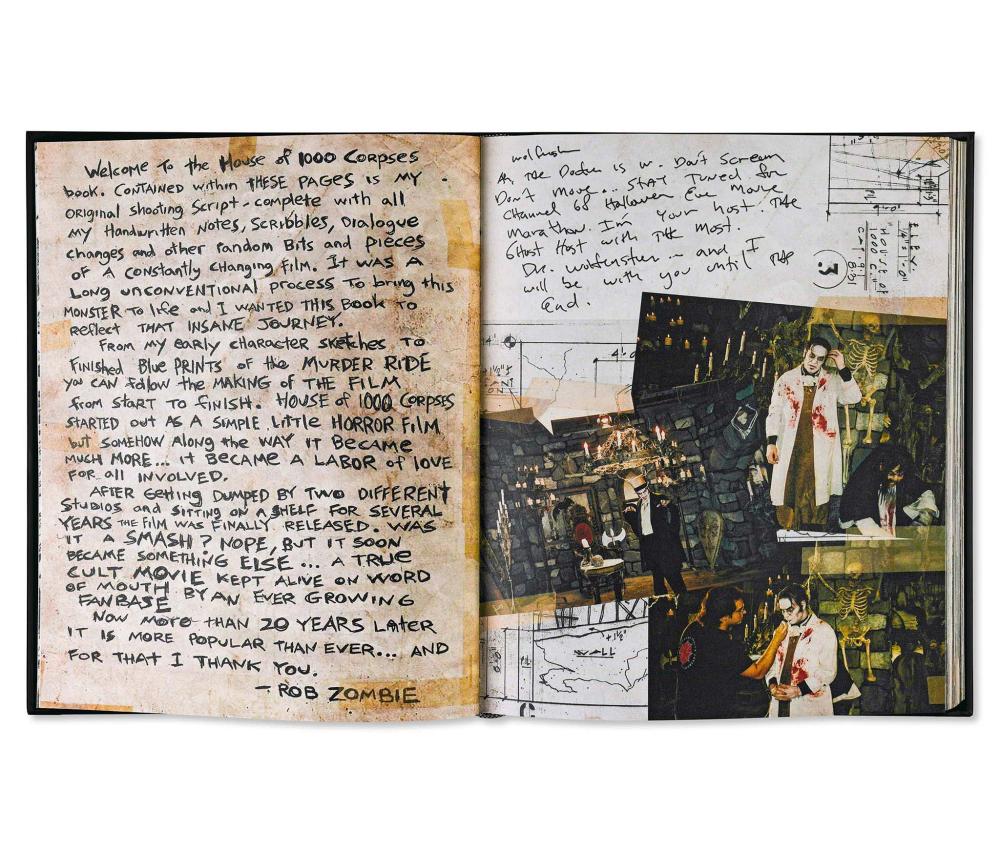 Welcome To the House of 1000 Corpses
book. CONTAINED within THESE PAGES is MY
original shooting script - complete with all
my Handwritten Notes, Scribbles, Dialogue
changes and other random Bits and pieces
of a constantly changing film. It was a
Long unconventional process to bring this
MONSTER to life and I WANTED THIS BOOK TO
reflect THAT INSANE JOURNEY.
From my early character sketches TO
finished Blue PRINTS of the MURDER RIDE
you can follow the MAKING of THE FILM
from START to finish. HOUSE of 1000 CORPSES
STARTED out AS A simple Little HORROR Film
but SOMEHOW Along the WAY IT BECAME
MUCH MORE... it BECAME A LABOR of LOVE
FOR all INVOLVED.
AFTER GETTING DUMPED BY TWO DIFFERENT
Studios and sitting on a SHELF FOR SEVERAL
YEARS THE FILM WAS FINALLY RELEASED. WAS
IT A SMASH? NOPE, BUT IT SOON
BECAME SOMETHING ELSE... A TRUE
CULT MOVIE KEPT ALIVE ON WORD
OF MOUTH BY AN EVER GROWING
FANBASE
NOW MORE THAN 20 YEARS LATER
IT IS MORE POPULAR THAN EVER... AND
FOR THAT I THANK YOU.
- ROB ZOMBIE
The Doctor is in. Don't Scream
Don't move... STAY Tuned for
Channel 68 Halloween Eve Movie
Marathon. I'm your host. The
Ghost Host with The Most.
Dr. Wolfenstein ... and I
will be with you until The
End.
ELEV.
1/4"=1'-0"
HOUSE OF
1000 C.
3
4'-0
WALL
+1½"